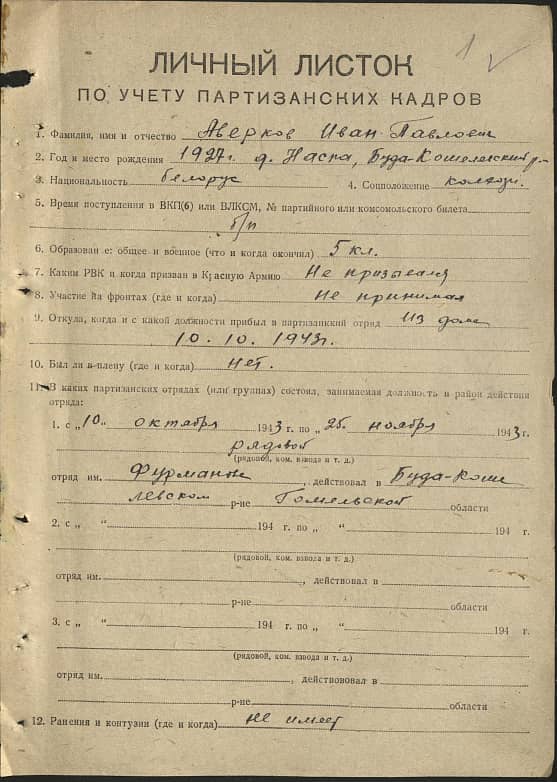 1 √
ЛИЧНЫЙ ЛИСТОК
ПО УЧЕТУ ПАРТИЗАНСКИХ КАДРОВ
1. Фамилия, имя и отчество Аверков Иван Павлович
2. Год и место рождения 1927г. д. Наспа, Буда-Кошелевский р-н
3. Национальность белорус 4. Соцположение колхозн.
5. Время поступления в ВКП(б) или ВЛКСМ, № партийного или комсомольского билета
б/п
6. Образование: общее и военное (что и когда окончил) 5 кл.
7. Каким РВК и когда призван в Красную Армию Не призывался
8. Участие на фронтах (где и когда) не принимал
9. Откуда, когда и с какой должности прибыл в партизанский отряд из дома
10.10.1943г.
10. Был ли в плену (где и когда) нет.
11. В каких партизанских отрядах (или группах) состоял, занимаемая должность и район действия
отряда:
1. с „10“ октября 1943 г. по „25“ ноября 1943 г.
рядовой
(рядовой, ком. взвода и т. д.)
отряд им. Фурманова, действовал в Буда-Коше
левском р-не Гомельской области
2. с „ “ 194 г. по „ “ 194 г.
(рядовой, ком. взвода и т. д.)
отряд им. , действовал в
р-не области
3. с „ “ 194 г. по „ “ 194 г.
(рядовой, ком. взвода и т. д.)
отряд им. , действовал в
р-не области
12. Ранения и контузии (где и когда) не имеет